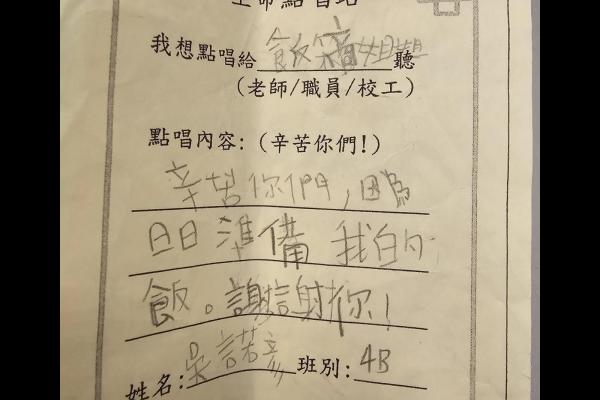 生命點唱站
我想點唱給飯箱姐姐聽
(老師/職員/校工)
點唱內容:(辛苦你們!)
辛苦你們,因為
日日準備我的
飯。謝謝你!
姓名:吳諾彥 班別:4B